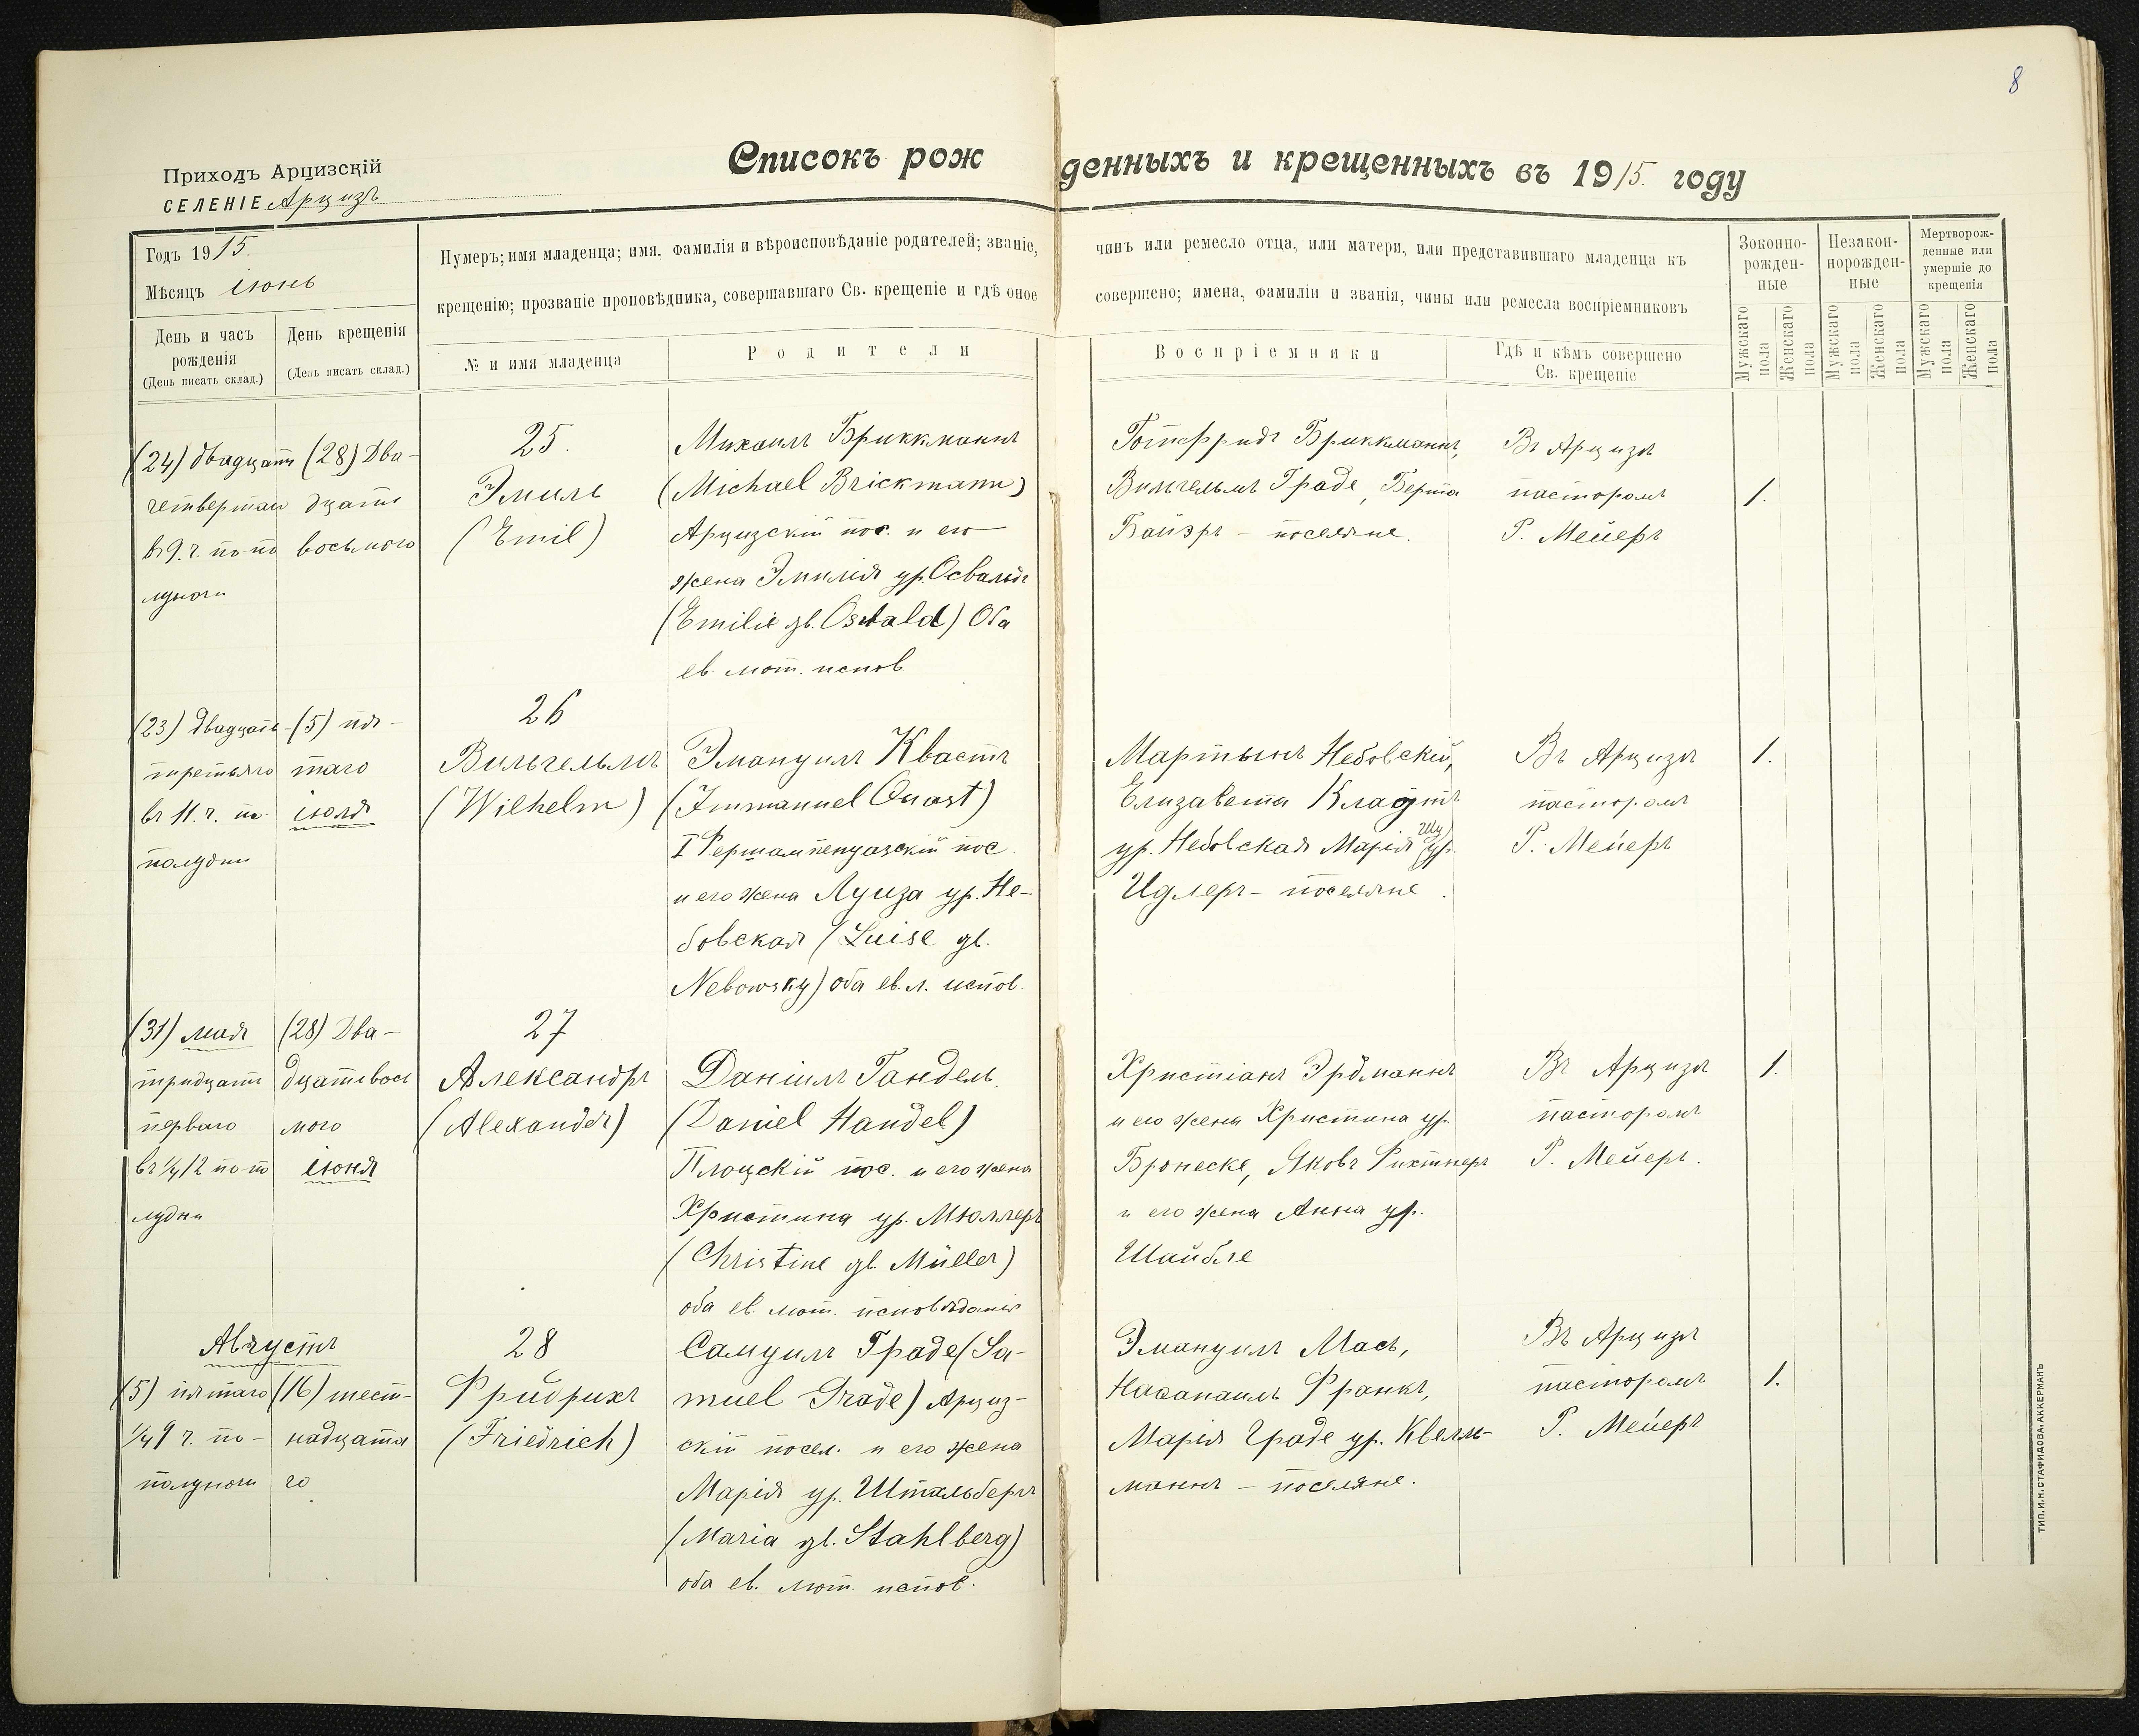 8
Приходъ Арцизскій
СЕЛЕНІЕ Арцизъ
Списокъ рожденныхъ и крещенныхъ въ 1915. году
Годъ 1915.
Мѣсяцъ іюнь
День и часъ рожденія
(День писать склад.)
День крещенія
(День писать склад.)
Нумеръ; имя младенца; имя, фамилія и вѣроисповѣданіе родителей; званіе, чинъ или ремесло отца, или матери, или представившаго младенца къ
крещенію; прозваніе проповѣдника, совершавшаго Св. крещеніе и гдѣ оное совершено; имена, фамиліи и званія, чины или ремесла воспріемниковъ
№ и имя младенца
Родители
Воспріемники
Гдѣ и кѣмъ совершено
Св. крещеніе
Зоконно-
рожден-
ные
Незакон-
норожден-
ные
Мертворож-
денные или
умершіе до
крещенія
Мужскаго пола
Женскаго пола
Мужскаго пола
Женскаго пола
Мужскаго пола
Женскаго пола
(24) двадцать
четвертаго
въ 9. ч. по по
луночи
(28) Два-
дцать
восьмого
25.
Эмиль
(Emil)
Михаилъ Бриккманнъ
(Michael Brickmann)
Арцизскій пос. и его
жена Эмилія ур. Освальдъ
(Emilie gb. Oswald) Оба
ев. лют. испов.
Готфридъ Бриккманнъ,
Вильгельмъ Граде, Берта
Байэръ - поселяне.
Въ Арцизѣ
пасторомъ
Г. Мейеръ
1.
(23) двадцать-
третьяго
въ 11. ч. по
полудни
(5) пя-
таго
іюля
26
Вильгельмъ
(Wilhelm)
Эмануилъ Квастъ
(Immanuel Quast)
I Фершампенуазскій пос.
и его жена Луиза ур. Не-
бовская (Luise gb.
Nebowsky) оба ев. л. испов.
Мартынъ Небовскій,
Елизавета
ур. Небовская Марія ур.
Шу
Идлеръ - поселяне.
Въ Арцизѣ
пасторомъ
Г. Мейеръ
1.
(31) мая
тридцать
перваго
въ 1/4 12 по по
лудни
(28) Два-
дцативось
мого
іюня
27
Александръ
(Alexander)
Даніилъ Гандель.
(Daniel Handel)
Плоцскій пос. и его жена
Христина ур. Мюллеръ
(Christine gb. Müller)
оба ев. лют. исповѣданія
Христіанъ Эрдманнъ
и его жена Христина ур.
Бронеске, Яковъ Рихтнеръ
и его жена Анна ур.
Шайбле
Въ Арцизѣ
пасторомъ
Г. Мейеръ.
1.
Августъ
(5) пятаго
1/4 9 ч. по-
полуночи
(16) шест-
надцата
го
28
Фридрихъ
(Friedrich)
Самуилъ Граде (Sa-
muel Grade) Арциз-
скій посел. и его жена
Марія ур. Штальбергъ
(Maria gb. Stahlberg)
оба ев. лют. испов.
Эмануилъ Мась,
Насанаилъ Франкъ,
Марія Граде ур. Квелль-
маннъ - поселяне.
Въ Арцизѣ
пасторомъ
Г. Мейеръ
1.
ТИП. И. Н. СТАФИДОВА. АККЕРМАНЪ